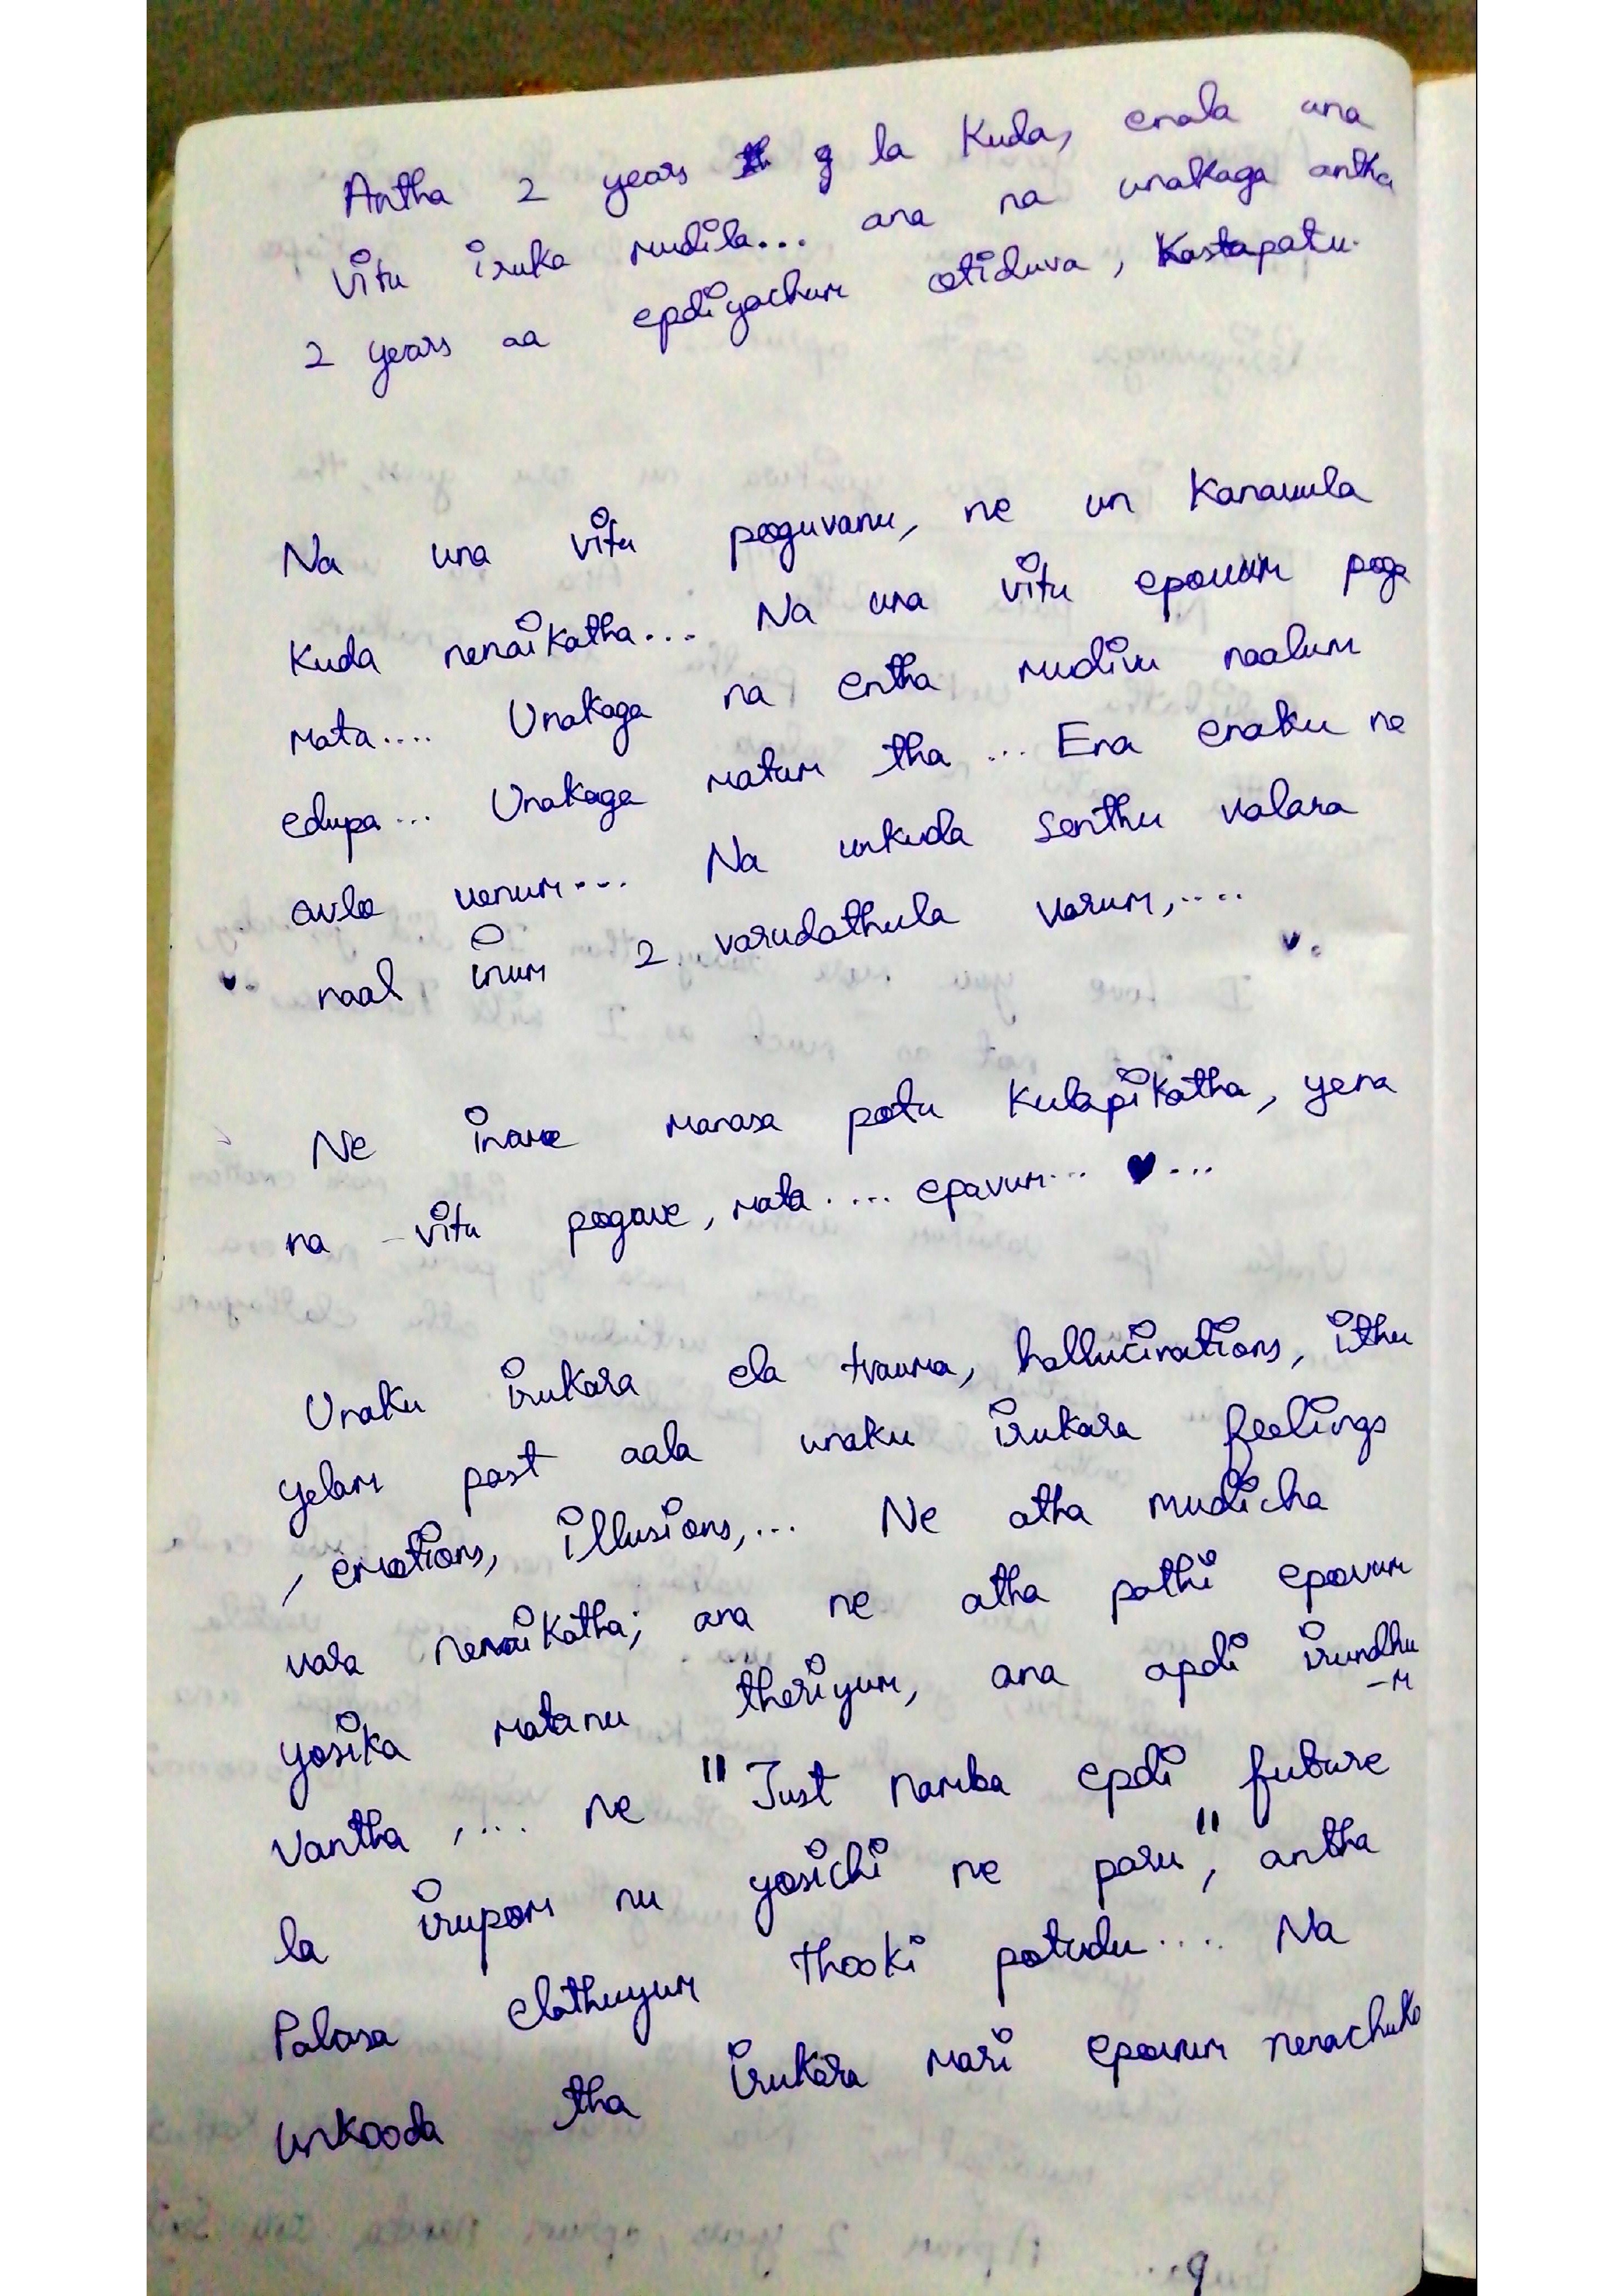 Antha 2 years la Kuda, enala una
vitu iruka mudila... ana na unakaga antha
2 years aa epdiyachum otiduva, Kastapatu.
Na una vitu poguvanu, ne un Kanavula
Kuda nenaikatha... Na una vitu epovum poga
mata.... Unakaga na entha mudivu naalum
edupa... Unakaga matum tha ... Ena enaku ne
avlo venum... Na unkuda senthu valara
♥. naal inum 2 varudathula varum,.... ♥.
Ne iname manasa potu Kulapikatha, yena
na vitu pogave, mata .... epavum... ♥...
Unaku irukara ela trauma, hallucinations, ithu
yelam past aala unaku irukara feelings
, emotions, illusions,... Ne atha mudicha
vara nenaikatha; ana ne atha pathi epovum
yosika matanu theriyum, ana apdi irundhu
-m
vantha ,.... ne "Just namba epdi future
la irupom nu yosichi ne paru", antha
Palasa elathuyum thooki potudu.... Na
unkooda tha irukara mari epovum nenachuko
9